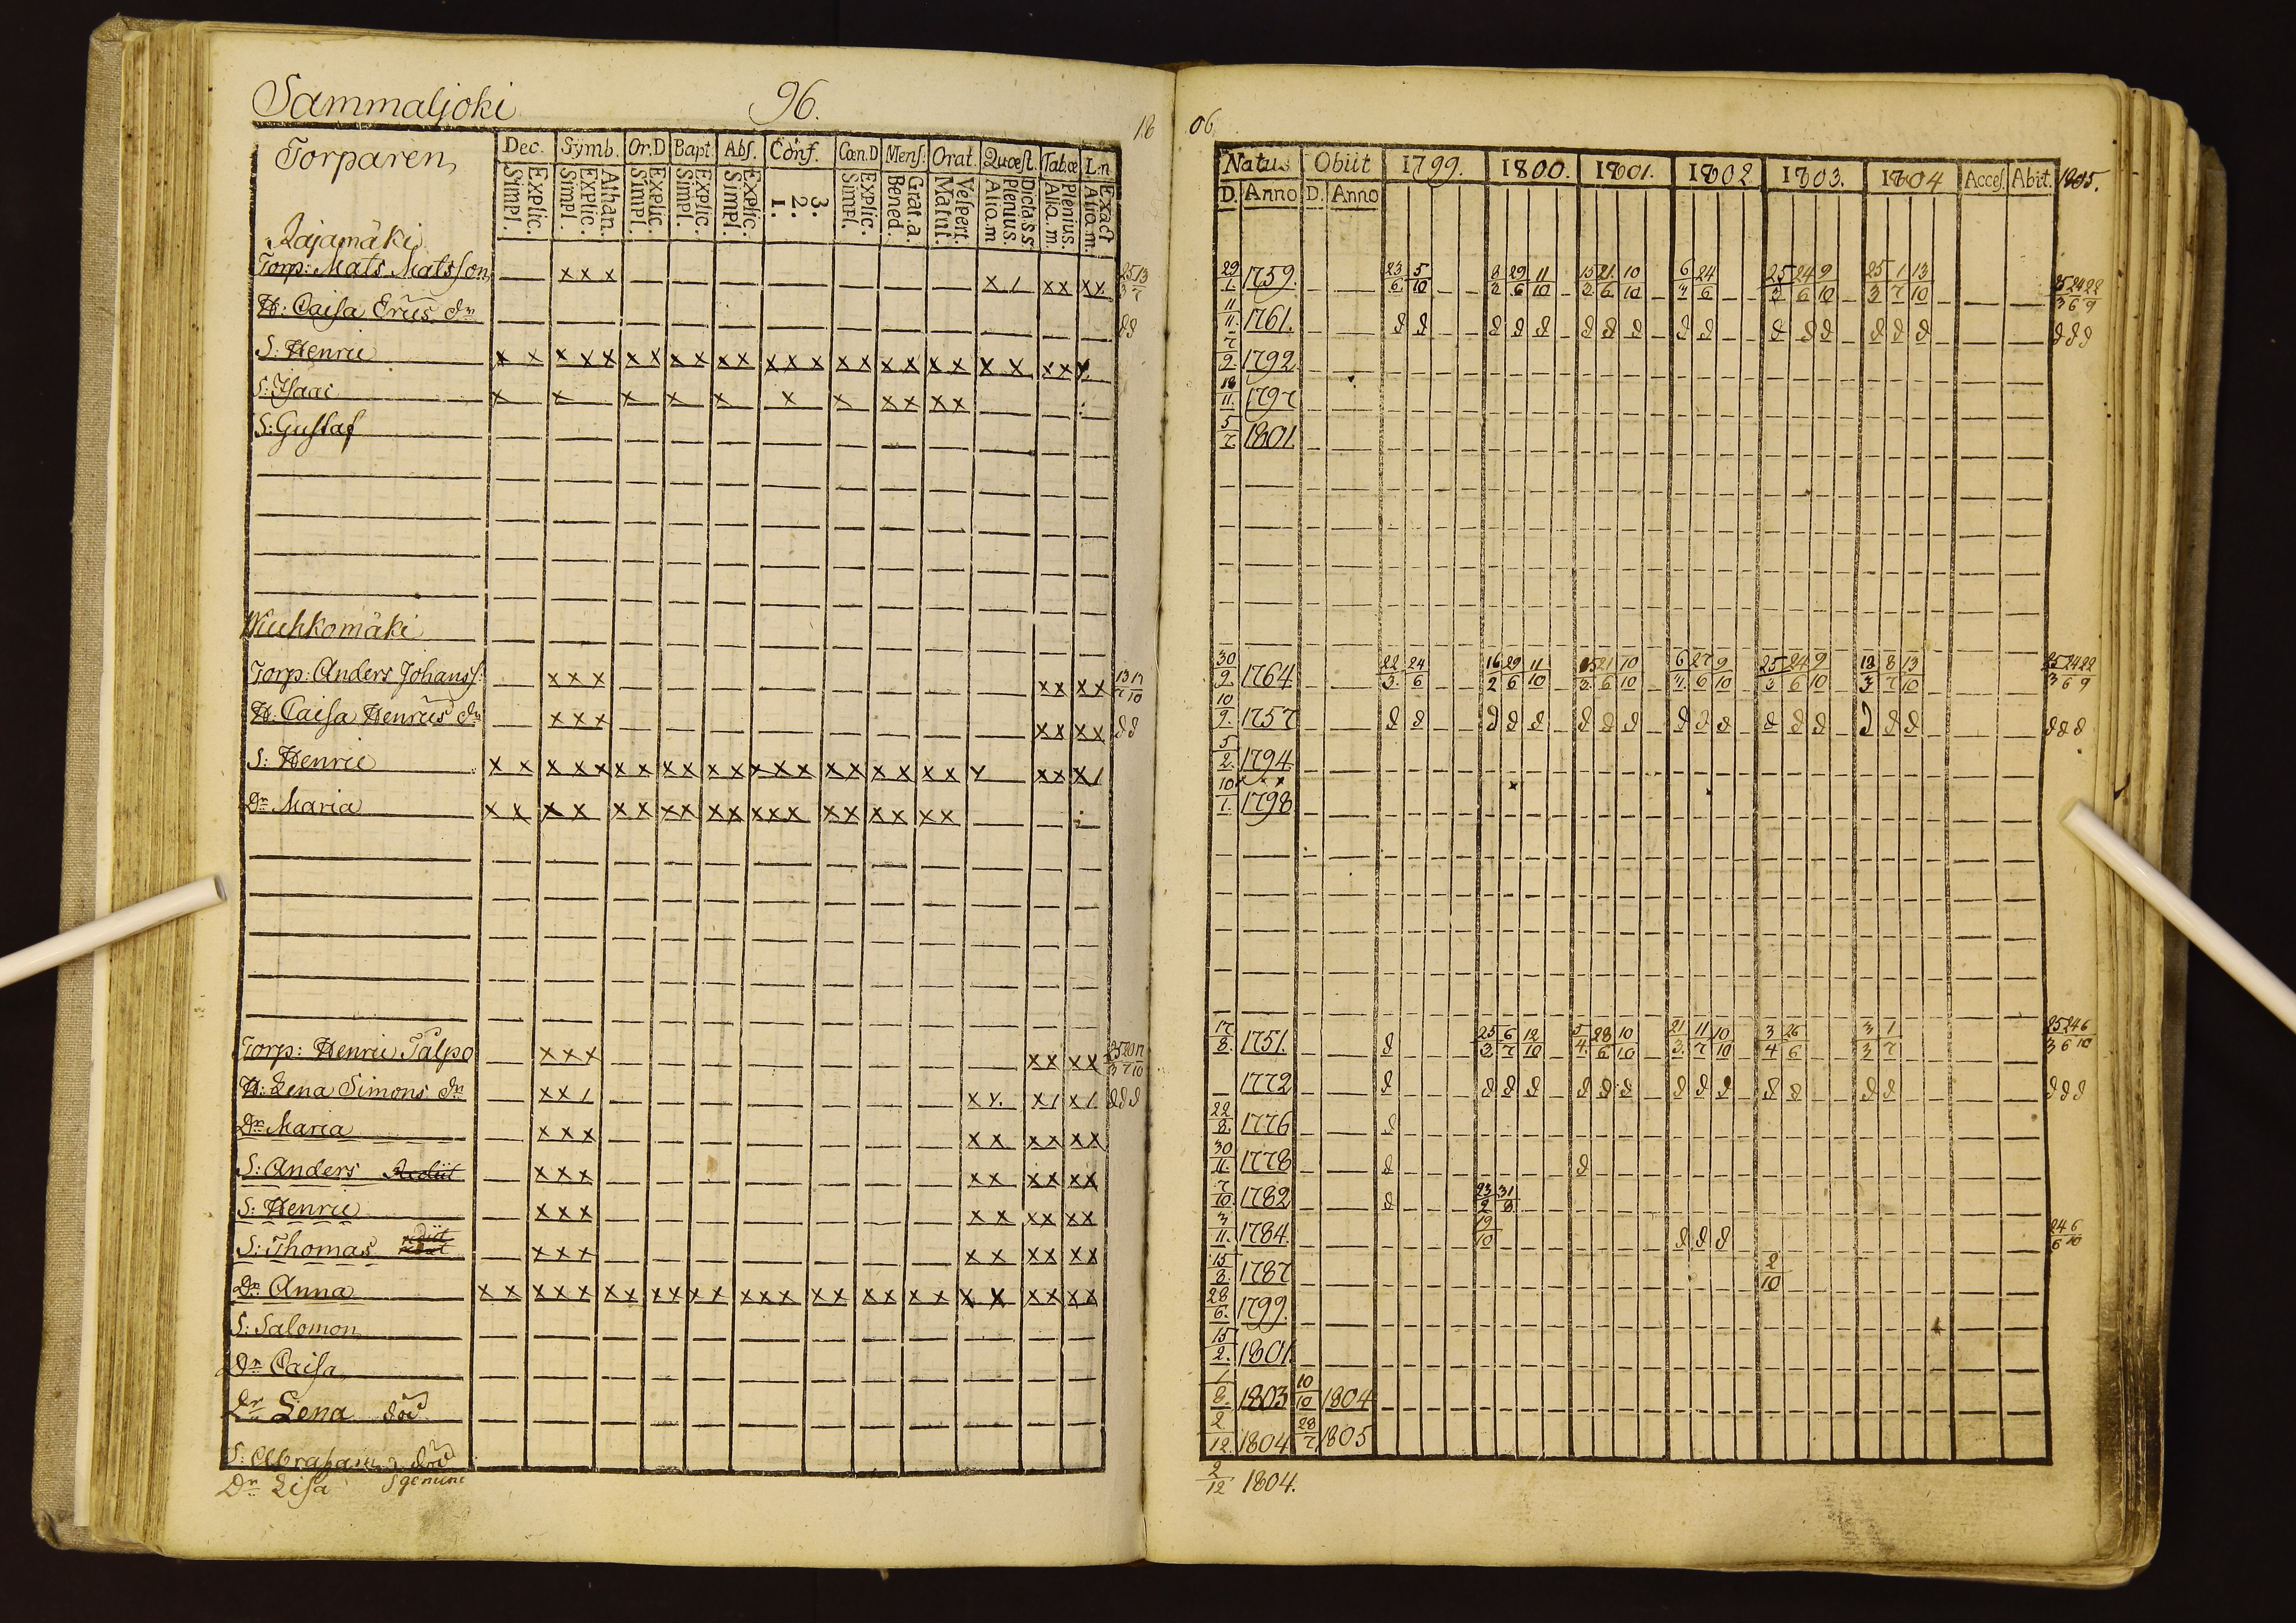 Sammaljoki 96.
18 06.
Torparen
Dec. Symb. Or.D Bapt. Abs. Conf. Cœn.D Mens. Orat. Quæst. Tab.œ L:n
Explic. Simpl. Athan. Explic. Simpl. Explic. Simpl. Explic. Simpl. Explic. Simpl. 3. 2. 1. Explic. Simpl. Grat. a. Bened. Vespert. Matut. Dicta.s.s. Plenius. Alio.m Plenius. Alio.m. Exact Alio.m.
Natus Obiit 1799. 1800. 1801. 1802 1803. 1804 Acces. Abiit. 1805.
D. Anno D. Anno
Rajamäki
Torp: Mats Matsson x x x x / x x x x 25/3 13/7 29/1. 1759. 23/6. 5/10 8/2 29/6 11/10 15/3. 21/6 10/10 6/4 24/6 25/3 24/6 9/10 25/3 1/7 13/10 25/3 24/6 22/9
H: Caisa Erics dr d d 11/11. 1761. d d d d d d d d d d d d d d d d d d d
S: Henric x x x x x x x x x x x x x x x x x x x x x x x x x x 7/9. 1792
S: Isaac x x x x x x x x x x x 18/11. 1797
S: Gustaf 5/7. 1801.
Wuhkomäki
Torp: Anders Johanss: x x x x x x x 13/7 17/10 30/9. 1764. 22/3. 24/6 16/2 29/6 11/10 15/3. 21/6 10/10 6/4. 27/6 9/10 25/3 24/6 9/10 18/3 8/7 13/10 25/3 24/6 22/9
H. Caisa Henrics dr x x x x x x x d d 10/9. 1757 d d d d d d d d d d d d d d d d d d d d
S: Henric x x x x x x x x x x x x x x x x x x x x x x x x / 5/2. 1794
Dr Maria x x x x x x x x x x x x x x x x x x x 10/1. 1798
Torp: Henric Talpo x x x x x x x 25/3 20/7 17/10 17/8. 1751. d 25/3. 6/7 12/10 5/4. 28/6 10/10 21/3. 11/7 10/10 3/4 26/6 3/3 1/7 25/3 24/6 6/10
H: Lena Simons dr x x / x x. x / x / d d d 1772 d d d d d d d d d d d d d d d d d
Dr Maria x x x x x x x x x 22/8. 1776 d
S: Anders Rediit x x x x x x x x x 30/11. 1778 d d
S: Henric x x x x x x x x x 7/10. 1782 d 23/2 31/8
S: Thomas rediit x x x x x x x x x 3/11. 1784. 19/10 d d d 24/6 6/10
Dr Anna x x x x x x x x x x x x x x x x x x x x x x x x x x 15/8. 1787 2/10
S: Salomon 28/6. 1799.
Dr Caisa 15/2. 1801.
Dr Lena död 1/8. 1803 10/10 1804
S: Abraham död 2/12 1804 28/7 1805
Dr Lisa gemini 2/12 1804.